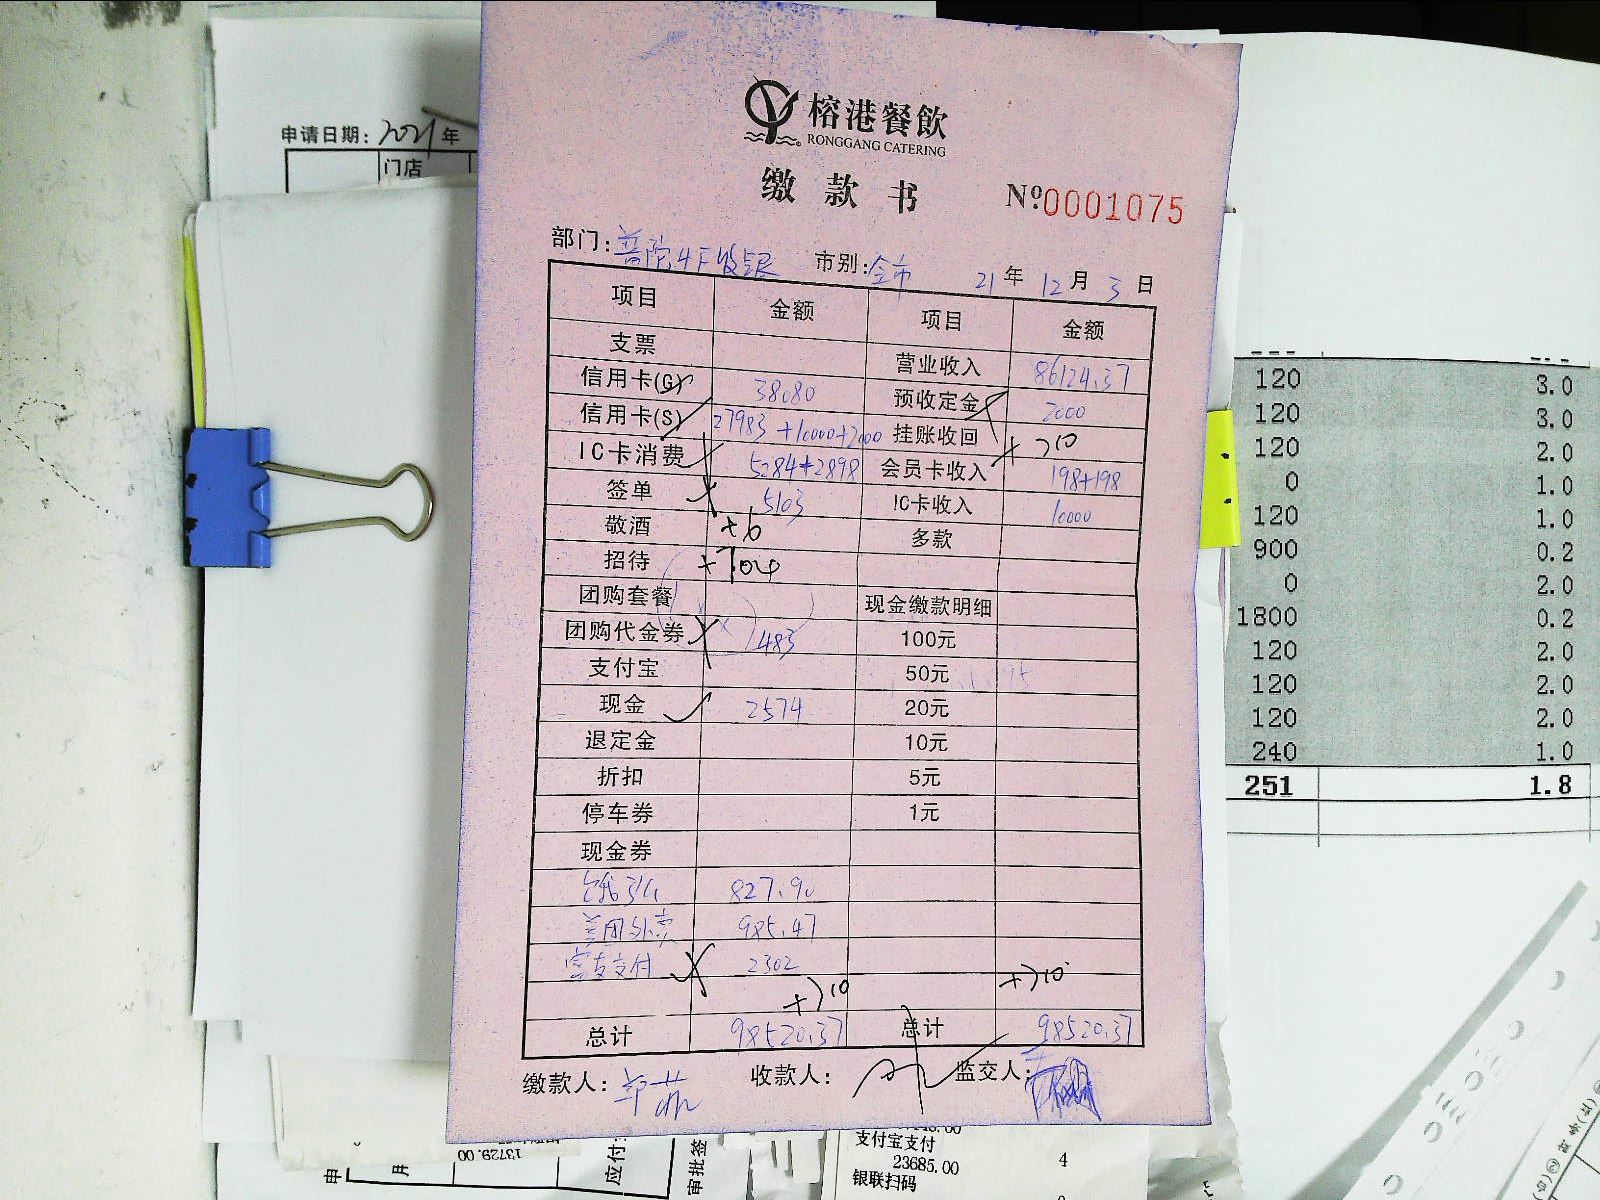 申请日期: 2021年
门店
榕港餐飲
RONGGANG CATERING
缴款书 №0001075
部门: 普陀4F收银 市别: 全市 21年12月3日
项目 金额 项目 金额
支票 营业收入 86124.37
信用卡(G) 38080 预收定金 2000
信用卡(S) 27983+10000+2000 挂账收回
IC卡消费 5284+2898 会员卡收入 198+198
签单 5103 IC卡收入 10000
敬酒 +6 多款
招待 +704
团购套餐 现金缴款明细
团购代金券 483 100元
支付宝 50元
现金 2574 20元
退定金 10元
折扣 5元
停车券 1元
现金券
827.90
美团外卖 985.47
富友支付 2302
总计 98520.37 总计 98520.37
缴款人: 收款人: 监交人:
120 3.0
120 3.0
120 2.0
0 1.0
120 1.0
900 0.2
0 2.0
1800 0.2
120 2.0
120 2.0
120 2.0
240 1.0
251 1.8
13729.00
应付
审批签
支付宝支付
23685.00 4
银联扫码